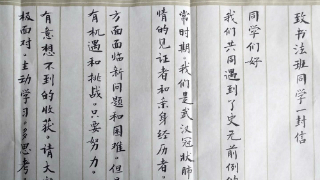 致书法班同学一封信
同学们好
我们共同遇到了史无前例的
常时期。我们是武汉冠状肺
情的见证者和亲身经历者。
方面面临新问题和困难。但是
有机遇和挑战。只要努力。
有意想不到的收获。请大家
极面对。主动学习。多思考。